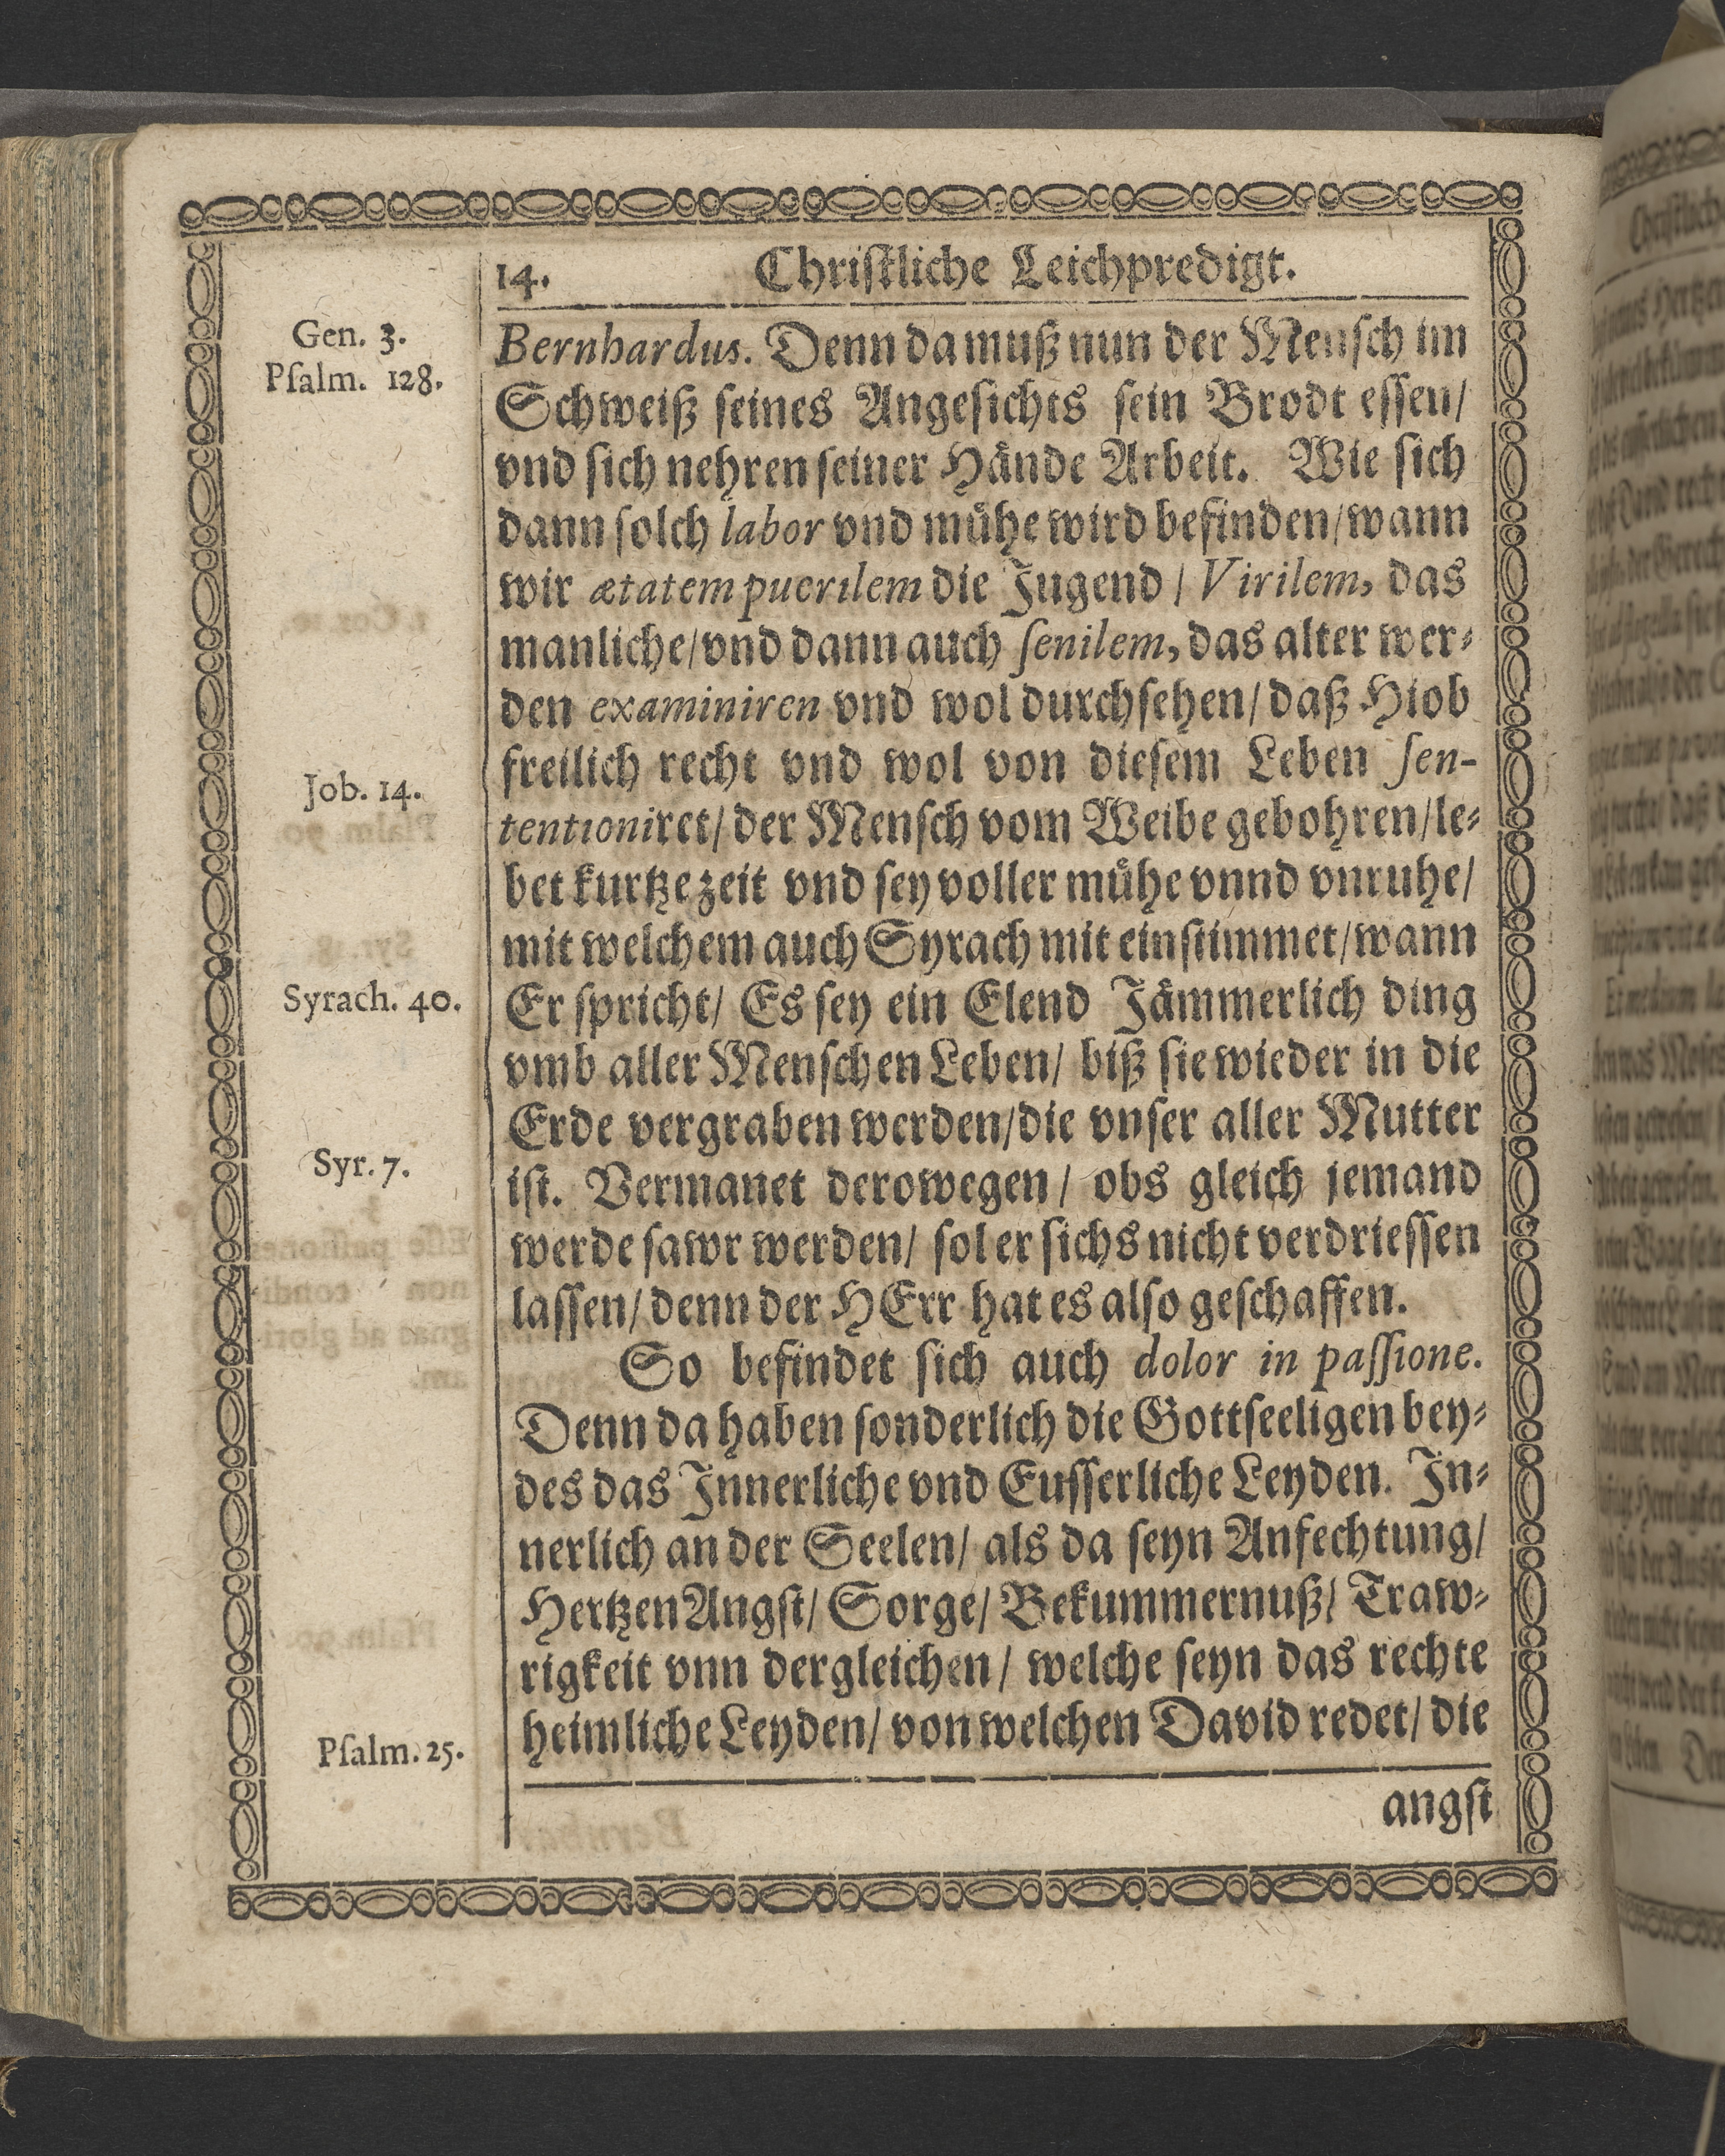 14. Christliche Leichpredigt.
Gen. 3.
Pſalm. 128.
Bernhardus. Denn da muß nun der Menſch im
Schweiß ſeines Angeſichts ſein Brodt eſſen/
vnd ſich nehren ſeiner Hände Arbeit. Wie ſich
dann ſolch labor vnd mühe wird befinden/wann
wir ætatem puerilem die Jugend / Virilem, das
manliche/vnd dann auch ſenilem, das alter wer⸗
den examiniren vnd wol durchſehen/ daß Hiob
freilich recht vnd wol von dieſem Leben ſen-
Job. 14.
tentioniret/ der Menſch vom Weibe gebohren/le⸗
bet kurtze zeit vnd ſey voller mühe vnnd vnruhe/
mit welchem auch Syrach mit einſtimmet/wann
Syrach. 40.
Er ſpricht/ Es ſey ein Elend Jämmerlich ding
vmb aller Menſchen Leben/ biß ſie wieder in die
Erde vergraben werden/die vnſer aller Mutter
Syr. 7.
iſt. Vermanet derowegen/ obs gleich jemand
werde ſawr werden/ ſol er ſichs nicht verdrieſſen
laſſen/ denn der HErr hat es alſo geſchaffen.
So befindet ſich auch dolor in paſſione.
Denn da haben ſonderlich die Gottſeeligen bey⸗
des das Innerliche vnd Euſſerliche Leyden. In⸗
nerlich an der Seelen/ als da ſeyn Anfechtung/
Hertzen Angſt/ Sorge/ Bekummernuß/ Traw⸗
rigkeit vnn dergleichen/ welche ſeyn das rechte
heimliche Leyden/ von welchen David redet/ die
Pſalm. 25.
angſt